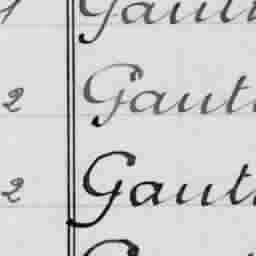 Gaut
2 Gaut
2 Gaut